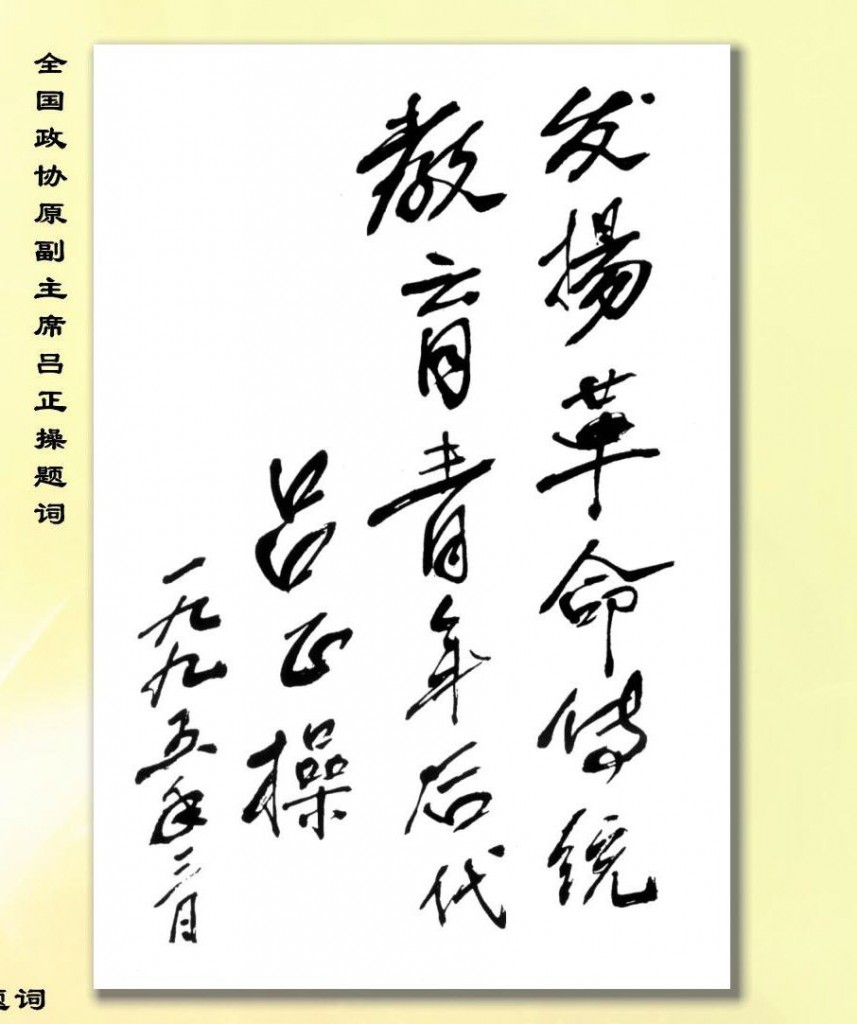 发揚革命传统
教育青年后代
吕正操
一九九五年二月
全国政协原副主席吕正操题词
题词